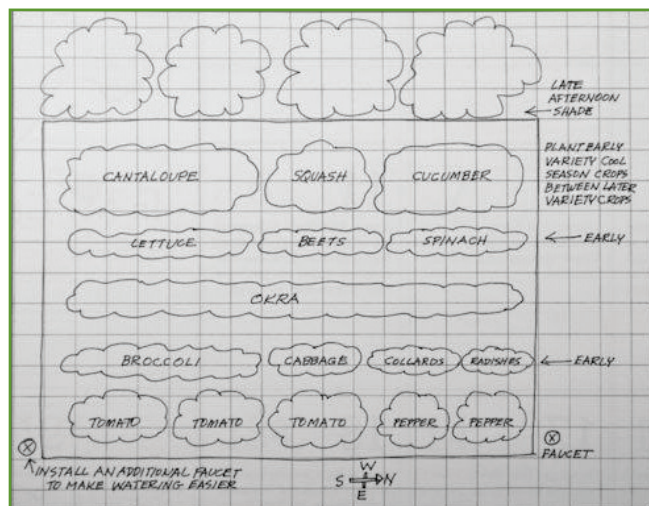 LATE
AFTERNOON
SHADE
PLANT EARLY
VARIETY COOL
SEASON CROPS
BETWEEN LATER
VARIETY CROPS
CANTALOUPE SQUASH CUCUMBER
LETTUCE BEETS SPINACH EARLY
OKRA
BROCCOLI CABBAGE COLLARDS RADISHES EARLY
TOMATO TOMATO TOMATO PEPPER PEPPER
X X
FAUCET
INSTALL AN ADDITIONAL FAUCET
TO MAKE WATERING EASIER
W
S N
E